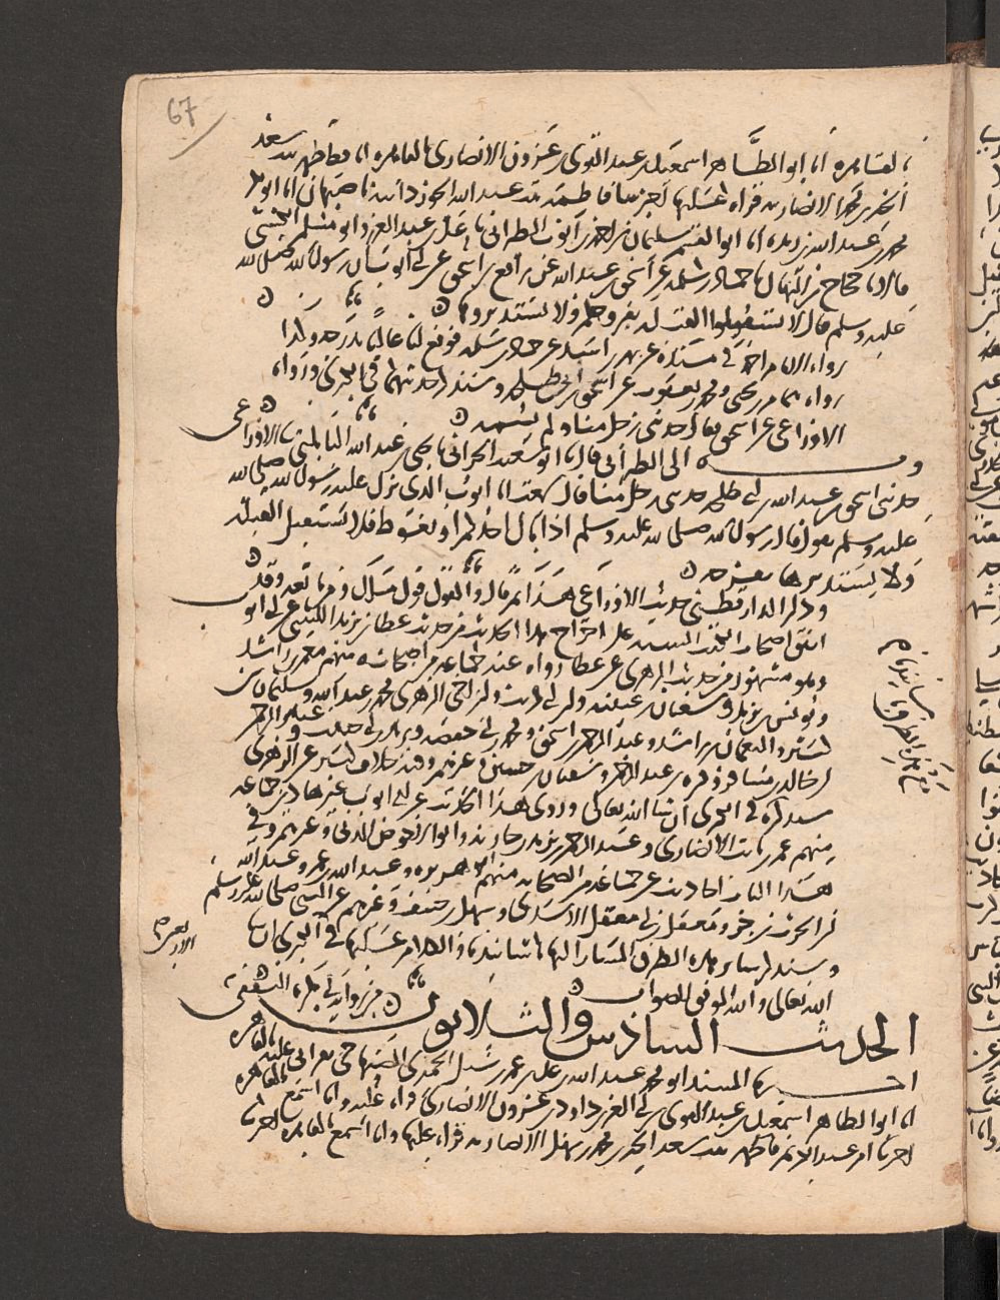 67
بالقاهرة انا ابو الطاهر اسمعيل بن عبد القوي بن عزون الانصاري بالقاهرة انا فاطمة بنت سعد
الخير بن محمد الانصارية قراة عليها اخبرتنا فاطمة بنت عبد الله الجوزدانية باصبهان انا ابو بكر
محمد بن عبد الله بن ريذه انا ابو القسم سليمن بن احمد بن ايوب الطبراني نا علي بن عبد العزيز وابو مسلم الكشي
قالا نا حجاج بن المنهال نا حماد بن سلمة عن اسحق بن عبد الله عن رافع بن اسحق عن ابي ايوب ان رسول الله صلى الله
عليه وسلم قال لا تستقبلوا القبلة بفروجكم ولا تستدبروها
رواه الامام احمد في مسنده عن بهز بن اسيد عن حماد بن سلمة فوقع لنا عاليا بدرجة وكذا
رواه همام بن يحيى ومحمد بن يعقوب عن اسحق بن ابي طلحة وسند احدهما في الكبرى ورواه
الاوزاعي عن اسحق فقال حدثني رجل منا ولم يسمه
وبه الى الطبراني قال نا ابو شعيب الحراني نا يحيى بن عبد الله البابلتي نا الاوزاعي
حدثني اسحق بن عبد الله بن ابي طلحة حدثني رجل منا قال سمعت ابا ايوب الذي نزل عليه رسول الله صلى الله
عليه وسلم يقول قال رسول الله صلى الله عليه وسلم اذا بال احدكم او تغوط فلا يستقبل القبلة
ولا يستدبرها بفرجه
وذكر الدارقطني حديث الاوزاعي هذا ثم قال والقول قول مالك ومن تابعه وقد
اتفق اصحاب الكتب الستة على اخراج هذا الحديث من حديث عطا بن يزيد الليثي عن ابي ايوب
وهو مشهور من حديث الزهري عن عطا رواه عنه جماعة من اصحابه منهم معمر بن راشد
ويونس بن يزيد وسفيان بن عيينة وابن ابي ذئب وابن اخي الزهري محمد بن عبد الله وسليمان بن
كثير والنعمان بن راشد وعبد الرحمن بن اسحق ومحمد بن ابي حفصة
بن خالد بن مسافر وقرة بن عبد الرحمن وسفيان بن حسين وغيرهم وفيه خلاف كثير عن الزهري
سنذكره في الكبرى ان شا الله تعالى وروى هذا الحديث عن ابي ايوب غير هاذين جماعة
منهم عمر بن ثابت الانصاري وعبد الرحمن بن يزيد بن جارية وابو الاحوص المدني وغيرهم وفي
هذا الباب احاديث عن جماعة من الصحابة منهم ابو هريرة وعبد الله بن عمر وعبد الله
بن الحرث بن جزء ومعقل بن ابي معقل الاسدي وسهل بن حنيف وغيرهم عن النبي صلى الله عليه وسلم
وسنذكر سائر هذه الطرق المشار اليها باسانيدها والكلام عليها في الكبرى ان شا
الله تعالى والله الموفق للصواب
الحديث السادس والثلاثون من رواية ابي بكرة الثقفي
اخبرنا المسند ابو محمد عبد الله بن علي بن عمر بن شبل الحميري الصنهاجي بقراتي عليه بالقاهرة
انا ابو الطاهر اسمعيل بن عبد القوي بن ابي العز بن داود بن عزون الانصاري قراة عليه وانا اسمع بالقاهرة
اخبرتنا ام عبد الكريم فاطمة بنت سعد الخير بن محمد بن سهل الانصارية قراة عليها وانا اسمع بالقاهرة اخبرتنا